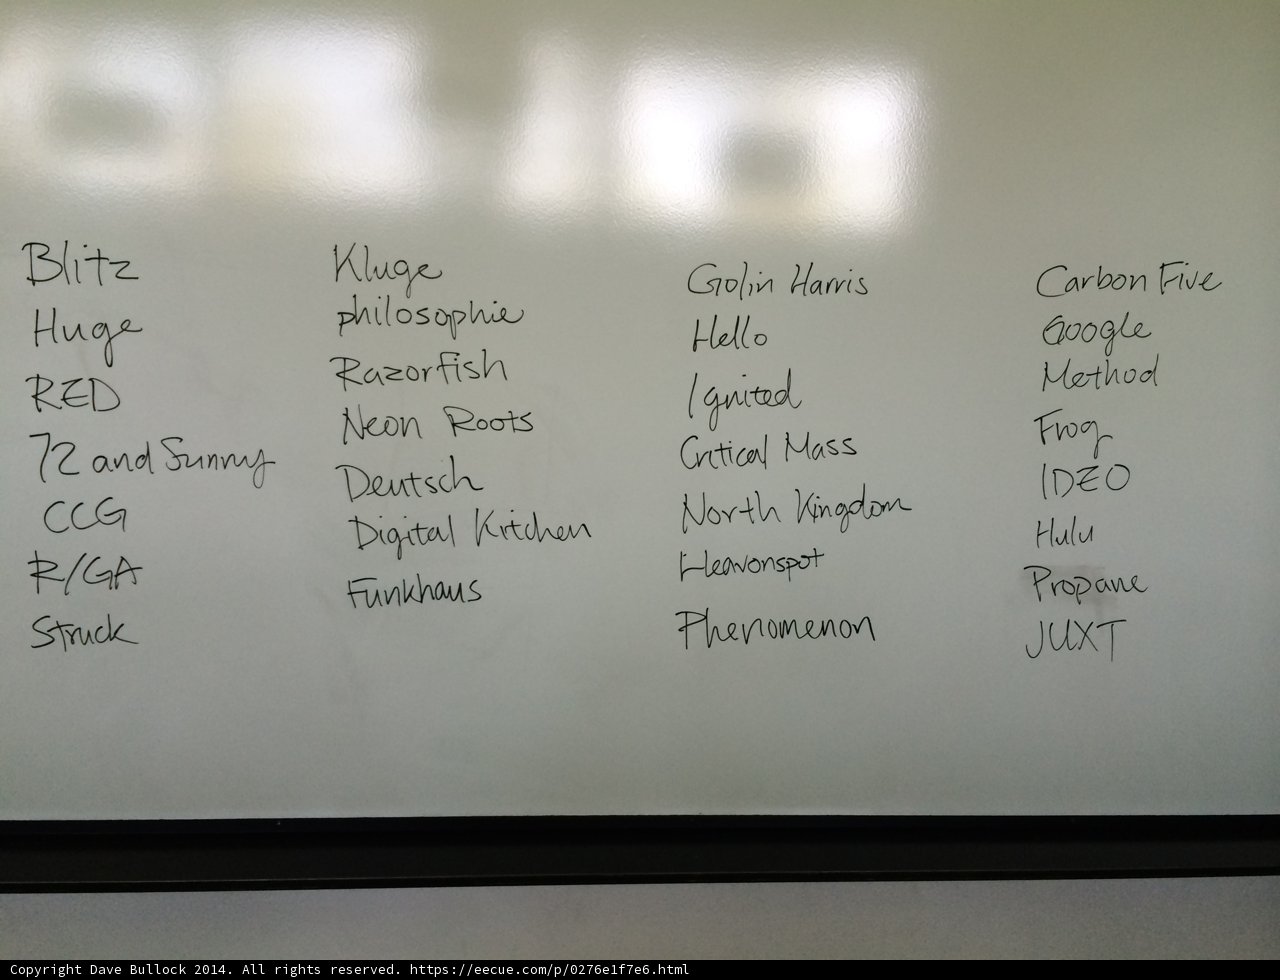 Blitz
Huge
RED
72 and Sunny
CCG
R/GA
Struck
Kluge
philosophie
Razorfish
Neon Roots
Deutsch
Digital Kitchen
Funkhaus
Golin Harris
Hello
Ignited
Critical Mass
North Kingdom
Heavonspot
Phenomenon
Carbon Five
Google
Method
Frog
IDEO
Hulu
Propane
JUXT
Copyright Dave Bullock 2014. All rights reserved. https://eecue.com/p/0276e1f7e6.html